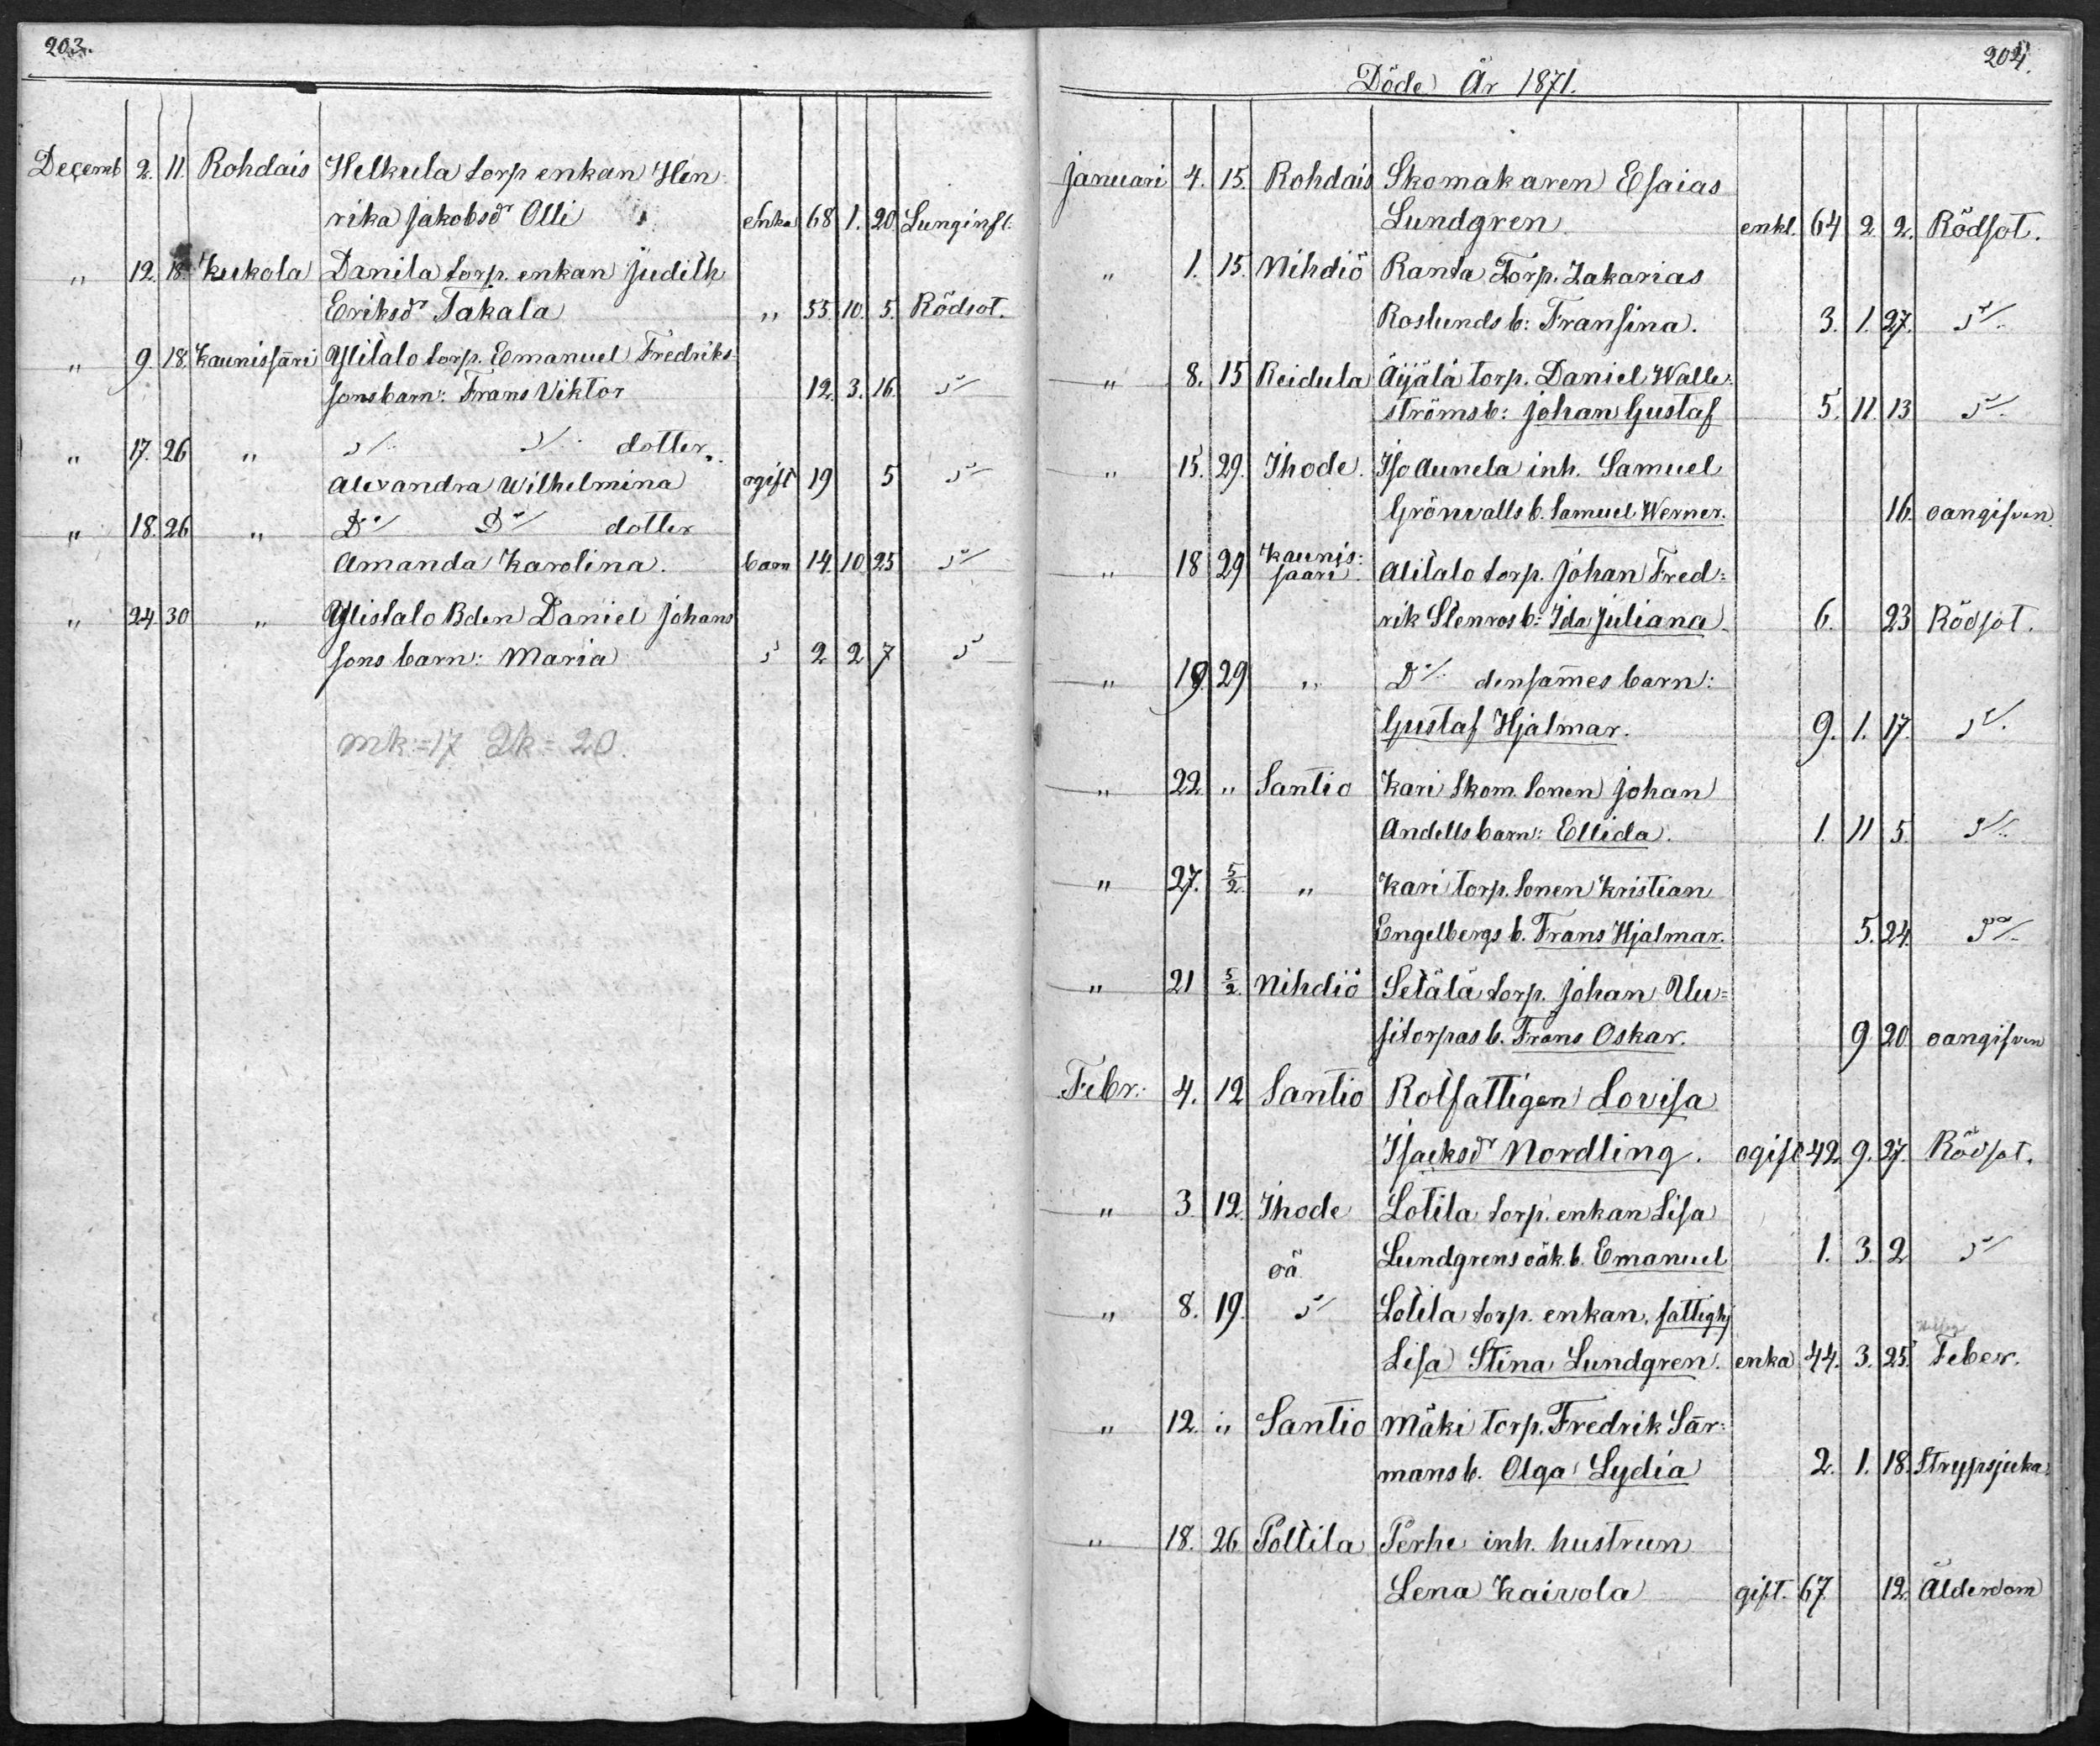 203.
Decemb 2. 11. Rohdais Helkula torp enkan Hen
rika Jakobsdr Olli enka 68 1. 20 Lunginfl:
" 12. 18. Kukola Danila torp. enkan Judith
Eriksdr Takala " 55. 10. 5. Rödsot.
" 9. 18. Kaunissäri Ylitalo torp. Emanuel Fredriks
sons barn: Frans Viktor 12. 3. 16. D:o
" 17. 26 " D:o D:o dotter
Alexandra Wilhelmina ogift 19 5 D:o
" 18. 26 " D:o D:o dotter
Amanda Karolina. barn 14. 10. 25 D:o
" 24. 30 " Ylistalo Bden Daniel Johans
sons barn: Maria D:o 2 2 7 D:o
mk:=17 Qk=20.
204.
Döde År 1871.
Januari 4. 15. Rohdais Skomakaren Esaias
Lundgren enkl. 64 2 2. Rödsot.
" 1. 15. Nihdiö Ranta Torp. Zakarias
Roslunds b: Fransina. 3. 1. 27. D:o
" 8. 15 Reidula Äijälä torp. Daniel Walle-
ströms b: Johan Gustaf 5. 11. 13 D:o
" 15. 29. Ihode. Iso Aunela inh. Samuel
Grönvalls b. Samuel Werner. 16. oangifven
" 18 29 Kaunis:
saari. Alitalo torp. Johan Fred=
rik Stenros b: Ida Juliana 6. 23 Rödsot.
" 19. 29 " D:o densammes barn:
Gustaf Hjalmar. 9. 1. 17. D:o
" 22. " Santio Kari Skom. Sonen Johan
Andells barn: Ellida. 1. 11 5. D:o
" 27. 5/2 " Kari torp. Sonen Kristian
Engelbergs b. Frans Hjalmar. 5. 24. D:o
" 21 5/2. Nihdiö Setälä torp. Johan Uu=
sitorpas b. Frans Oskar. 9 20. oangifven
Febr: 4. 12 Santio Rotfattigen Lovisa
Isacksdr Nordling. ogift 42. 9. 27. Rödsot.
" 3. 12. Ihode Lotila torp. enkan Lisa
oä Lundgrens oäk. b. Emanuel 1. 3. 2 D:o
" 8. 19. D:o Lotila torp. enkan, fattigh
Lisa Stina Lundgren. enka 44. 3. 25. Feber.
" 12. " Santio Mäki torp. Fredrik Sär-
mans b. Olga Lydia 2. 1. 18. Strypsjuka.
" 18. 26 Pottila Perhe inh. hustrun
Lena Kaivola gift. 67 12. Ålderdom